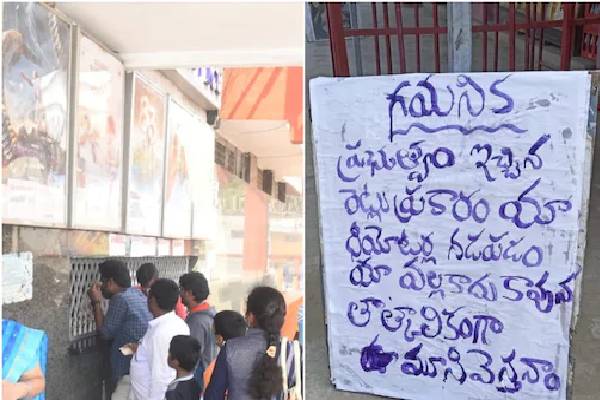 గమనిక
ప్రభుత్వం ఇచ్చిన
రేట్లు ప్రకారం మా
థియేటర్ల నడపడం
మా వల్లకాదు కావున
తాత్కాలికంగా
మూసివేస్తునాం